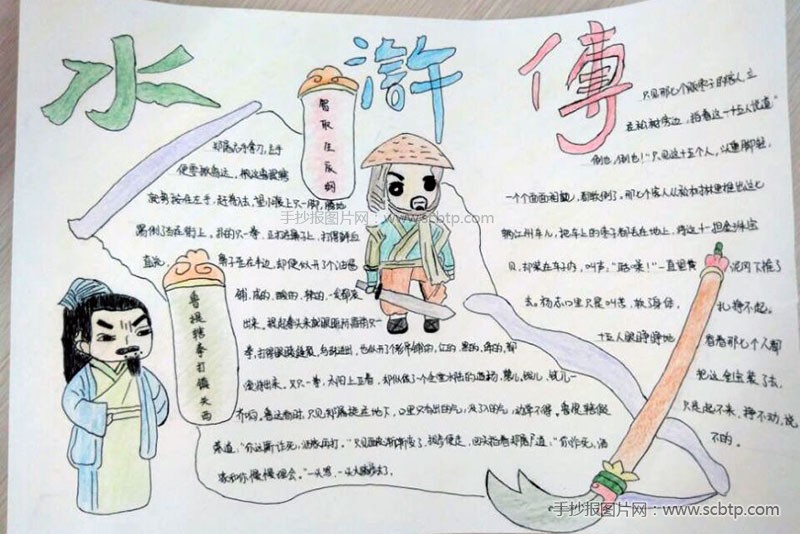 水 滸 傳
智取生辰纲
鲁提辖拳打镇关西
郑屠右手拿刀,左手
便要揪鲁达,被这鲁提辖
就势按住左手,赶将入去,望小腹上只一脚,腾地
踢倒了在街上。扑的只一拳,正打在鼻子上,打得鲜血
直流,鼻子歪在半边,却便似开了个油酱
铺,咸的,酸的,辣的,一发都滚
出来。提起拳头来就眼眶际眉梢只一
拳,打得眼棱缝裂,乌珠迸出,也似开了个彩帛铺的,红的,黑的,绛的,都
滚将出来。又只一拳,太阳上正着,却似做了一个全堂水陆的道场,磬儿,钹儿,铙儿一
齐响。鲁达看时,只见郑屠挺在地下,口里只有出的气,没了入的气,动弹不得。鲁提辖假
意道:"你这厮诈死,洒家再打。"只见面皮渐渐变了,拔步便走,回头指着郑屠尸道:"你诈死,洒
家和你慢慢理会。"一头骂,一头大踏步去了。
只见那七个贩枣子的客人,立
在松树旁边,指着这一十五人说道"
倒也,倒也!"只见这十五个人,头重脚轻,
一个个面面相觑,都软倒了,那七个客人从松树林里推出这七
辆江州车儿,把车上的枣子都丢在地上,将这十一担金珠宝
贝,却装在车子内,叫声,"聒噪!"一直望黄泥冈下推了
去。杨志口里只是叫苦,软了身体,扎挣不起。
十五人眼睁睁地看着那七个人都
把这金宝装了去,
只是起不来,挣不动,说
不的。
手抄报图片网:www.scbtp.com
手抄报图片网:www.scbtp.com